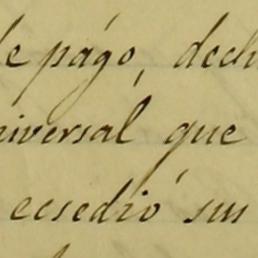 de págo, dech
niversal que
ecsedió sus